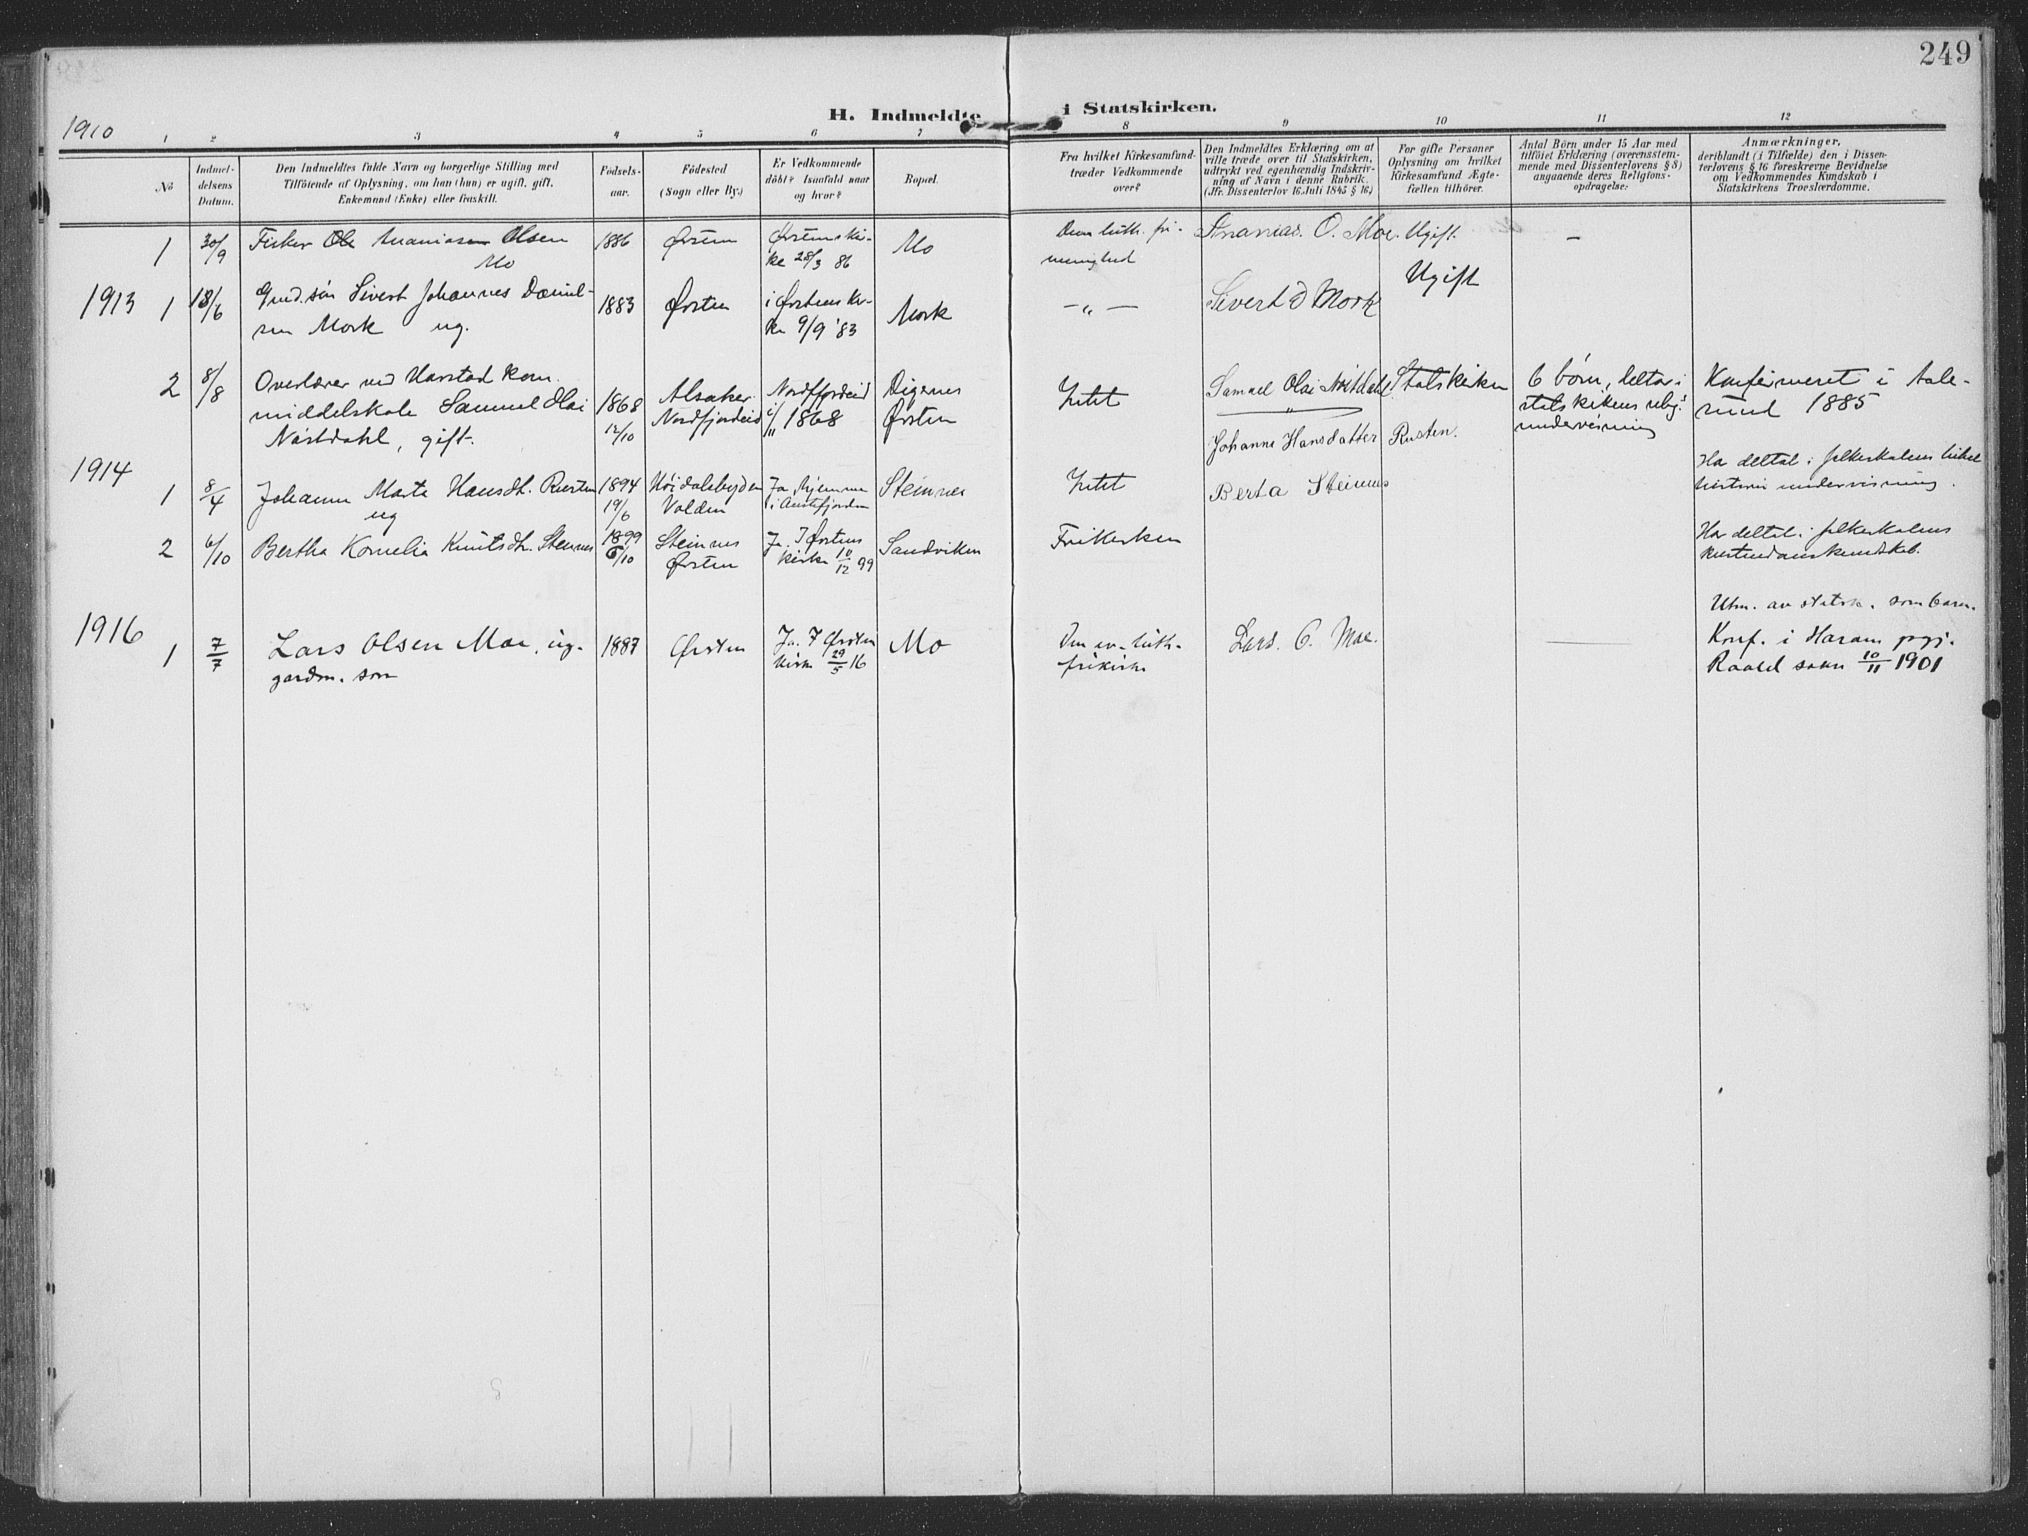 249
H. Indmeldte i Statskirken.
1910
1 2 3 4 5 6 7 8 9 10 11 12
No
Indmel-
delsens
Datum.
Den Indmeldtes fulde Navn og borgerlige Stilling med
Tilföiende af Oplysning, om han (hun) er ugift, gift,
Enkemand (Enke) eller fraskilt.
Födsels-
aar.
Födested
(Sogn eller By.)
Er Vedkommende
döbt? Isaafald naar
og hvor?
Bopæl.
Fra hvilket Kirkesamfund-
træder Vedkommende
over?
Den Indmeldtes Erklæring om at
ville træde over til Statskirken,
udtrykt ved egenhændig Indskriv-
ning af Navn i denne Rubrik.
(Jfr. Dissenterlov 16. Juli 1845 § 16.)
For gifte Personer
Oplysning om hvilket
Kirkesamfund Ægte-
fællen tilhörer.
Antal Börn under 15 Aar med
tilföiet Erklæring (overensstem-
mende med Dissenterlovens § 8)
angaaende deres Religions-
opdragelse:
Anmærkninger,
deriblandt (i Tilfælde) den i Dissen-
terlovens § 16 foreskrevne Bevidnelse
om Vedkommendes Kundskab i
Statskirkens Troeslærdomme.
1 30/9 Fisker Ole Ananias Olsen
Mo
1886 Ørsten
Ørstens kir-
ke 28/3 86
Mo
luth. fri-
menighed
Ananias. O. Moe. Ugift. –
1913 1 18/6 Gmd. søn Sivert Johannes Daniel-
sen Mork ug.
1883 Ørsten
i Ørstens kir-
ke 9/9 '83
Mork
– „ –
Sivert D Mork
Ugift
2 8/8 Overlærer ved Harstad kom.
middelskole Samuel Olai
Nöstdahl, gift.
1868
12/10
Alsaker
Nordfjordeid
Nordfjordeid
1/11 1868
Digernes
Ørsten
Intet
Samuel Olai Nöstdahl
Statskirken
6 børn, deltar i
statskirkens relig.
undervisning
Konfirmeret i Aale-
sund 1885
1914
1 8/4 Johanne Marte Hansdt. Rusten
ug
1894
19/6
Høidalsbygden
Volden
Ja hjemme
i Austefjorden
Steinnes
Intet
Johanne Hansdatter Rusten.
Har deltat i folkeskolens bibel
historie undervisning.
2 6/10 Bertha Kornelia Knutsdt. Steinnes
1899
6/10
Steinnes
Ørsten
Ja. I Ørstens
kirke 10/12 99
Sandviken
Frikirken
Berta Steinnes
Har deltat i folkeskolens
kristendomskundskab.
1916
1 7/7 Lars Olsen Moe, ug.
gardm. son
1887 Ørsten
Ja. I Ørsten
kirke 29/5 16
Mo
Den ev.-luth.
frikirke
Lars. O. Moe.
Utm. av statsk. som barn.
Konf. i Haram pgj.
sokn 10/11 1901